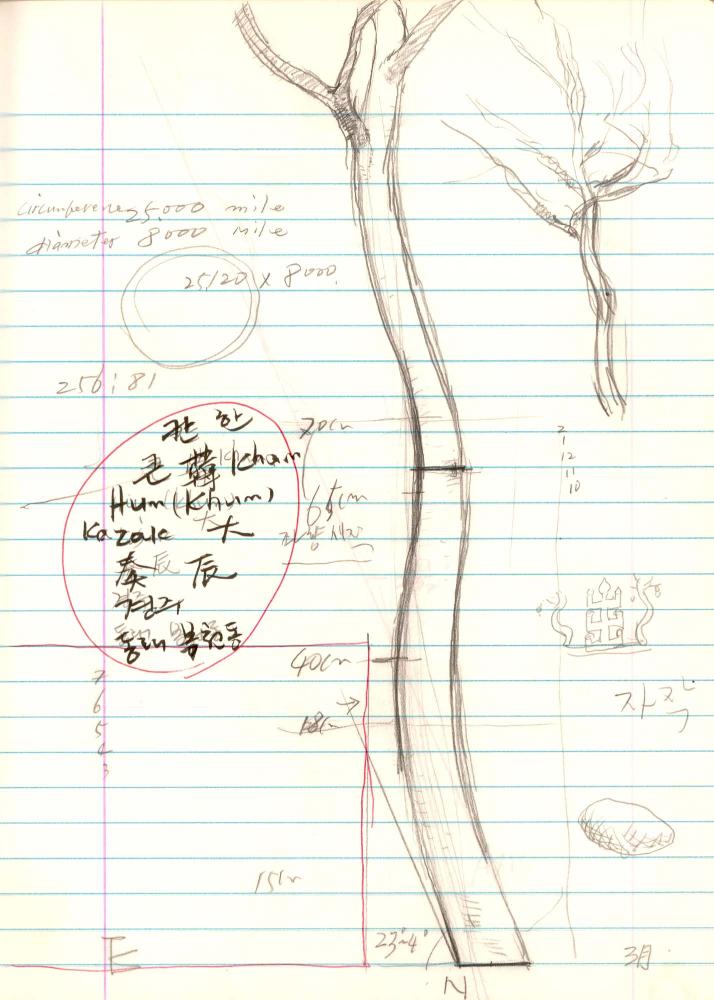 circumference 25,000 mile
diameter 8000 mile
25/20 x 8000
256 : 81
칸 한
큰 韓 Khan
Hum (Khum)
Kazak 大
秦 辰 辰
경주
동래 복천동
70cm
65cm
40cm
18cm
15cm
7
6
5
4
3
2
1
12
11
10
23°4'
E
N
3月